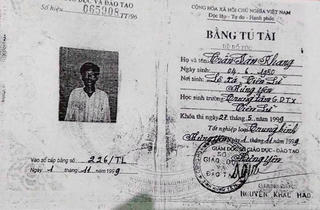 DỤC VÀ ĐÀO TẠO
Số hiệu 065908 TT/96
Vào sổ cấp bằng số 226/TL
Ngày 1 tháng 11 năm 1999
CỘNG HÒA XÃ HỘI CHỦ NGHĨA VIỆT NAM
Độc lập - Tự do - Hạnh phúc
BẰNG TÚ TÀI
Họ và tên: Trần Văn Khang
Ngày sinh: 04.6.1980
Nơi sinh:
Hưng Yên
Học sinh trường: Trung tâm G.D.T.X
Khóa thi ngày 27 tháng 5 năm 1999
Tốt nghiệp loại: Trung bình
Hưng Yên, ngày 1 tháng 11 năm 1999
GIÁM ĐỐC SỞ GIÁO DỤC - ĐÀO TẠO
Hưng Yên
NGUYỄN KHẮC HÀO